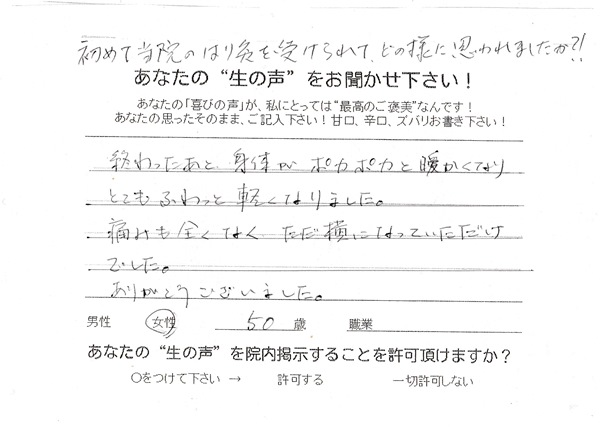 初めて当院のはり灸を受けられて、どの様に思われましたか?!
あなたの“生の声”をお聞かせ下さい！
あなたの「喜びの声」が、私にとっては“最高のご褒美”なんです！
あなたの思ったそのまま、ご記入下さい！甘口、辛口、ズバリお書き下さい！
終わったあと、身体がポカポカと暖かくなり
とてもふわっと軽くなりました。
痛みも全くなく ただ横になっていただけ
でした。
ありがとうございました。
男性 女性 50 歳 職業
あなたの“生の声”を院内掲示することを許可頂けますか？
○をつけて下さい → 許可する 一切許可しない